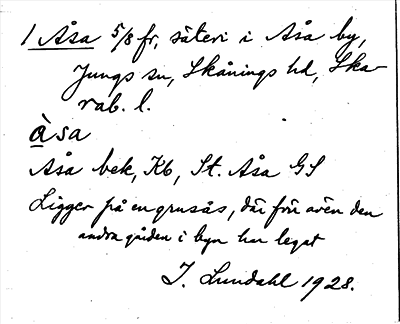 1 Åsa 5/8 fr, säteri i Åsa by,
Jungs sn, Skånings hd, Ska-
rab. l.
àsa
Åsa bek, Kb, St. Åsa GS
Ligger på en grusås, där förr även den
andra gården i byn har legat
I. Lundahl 1928.